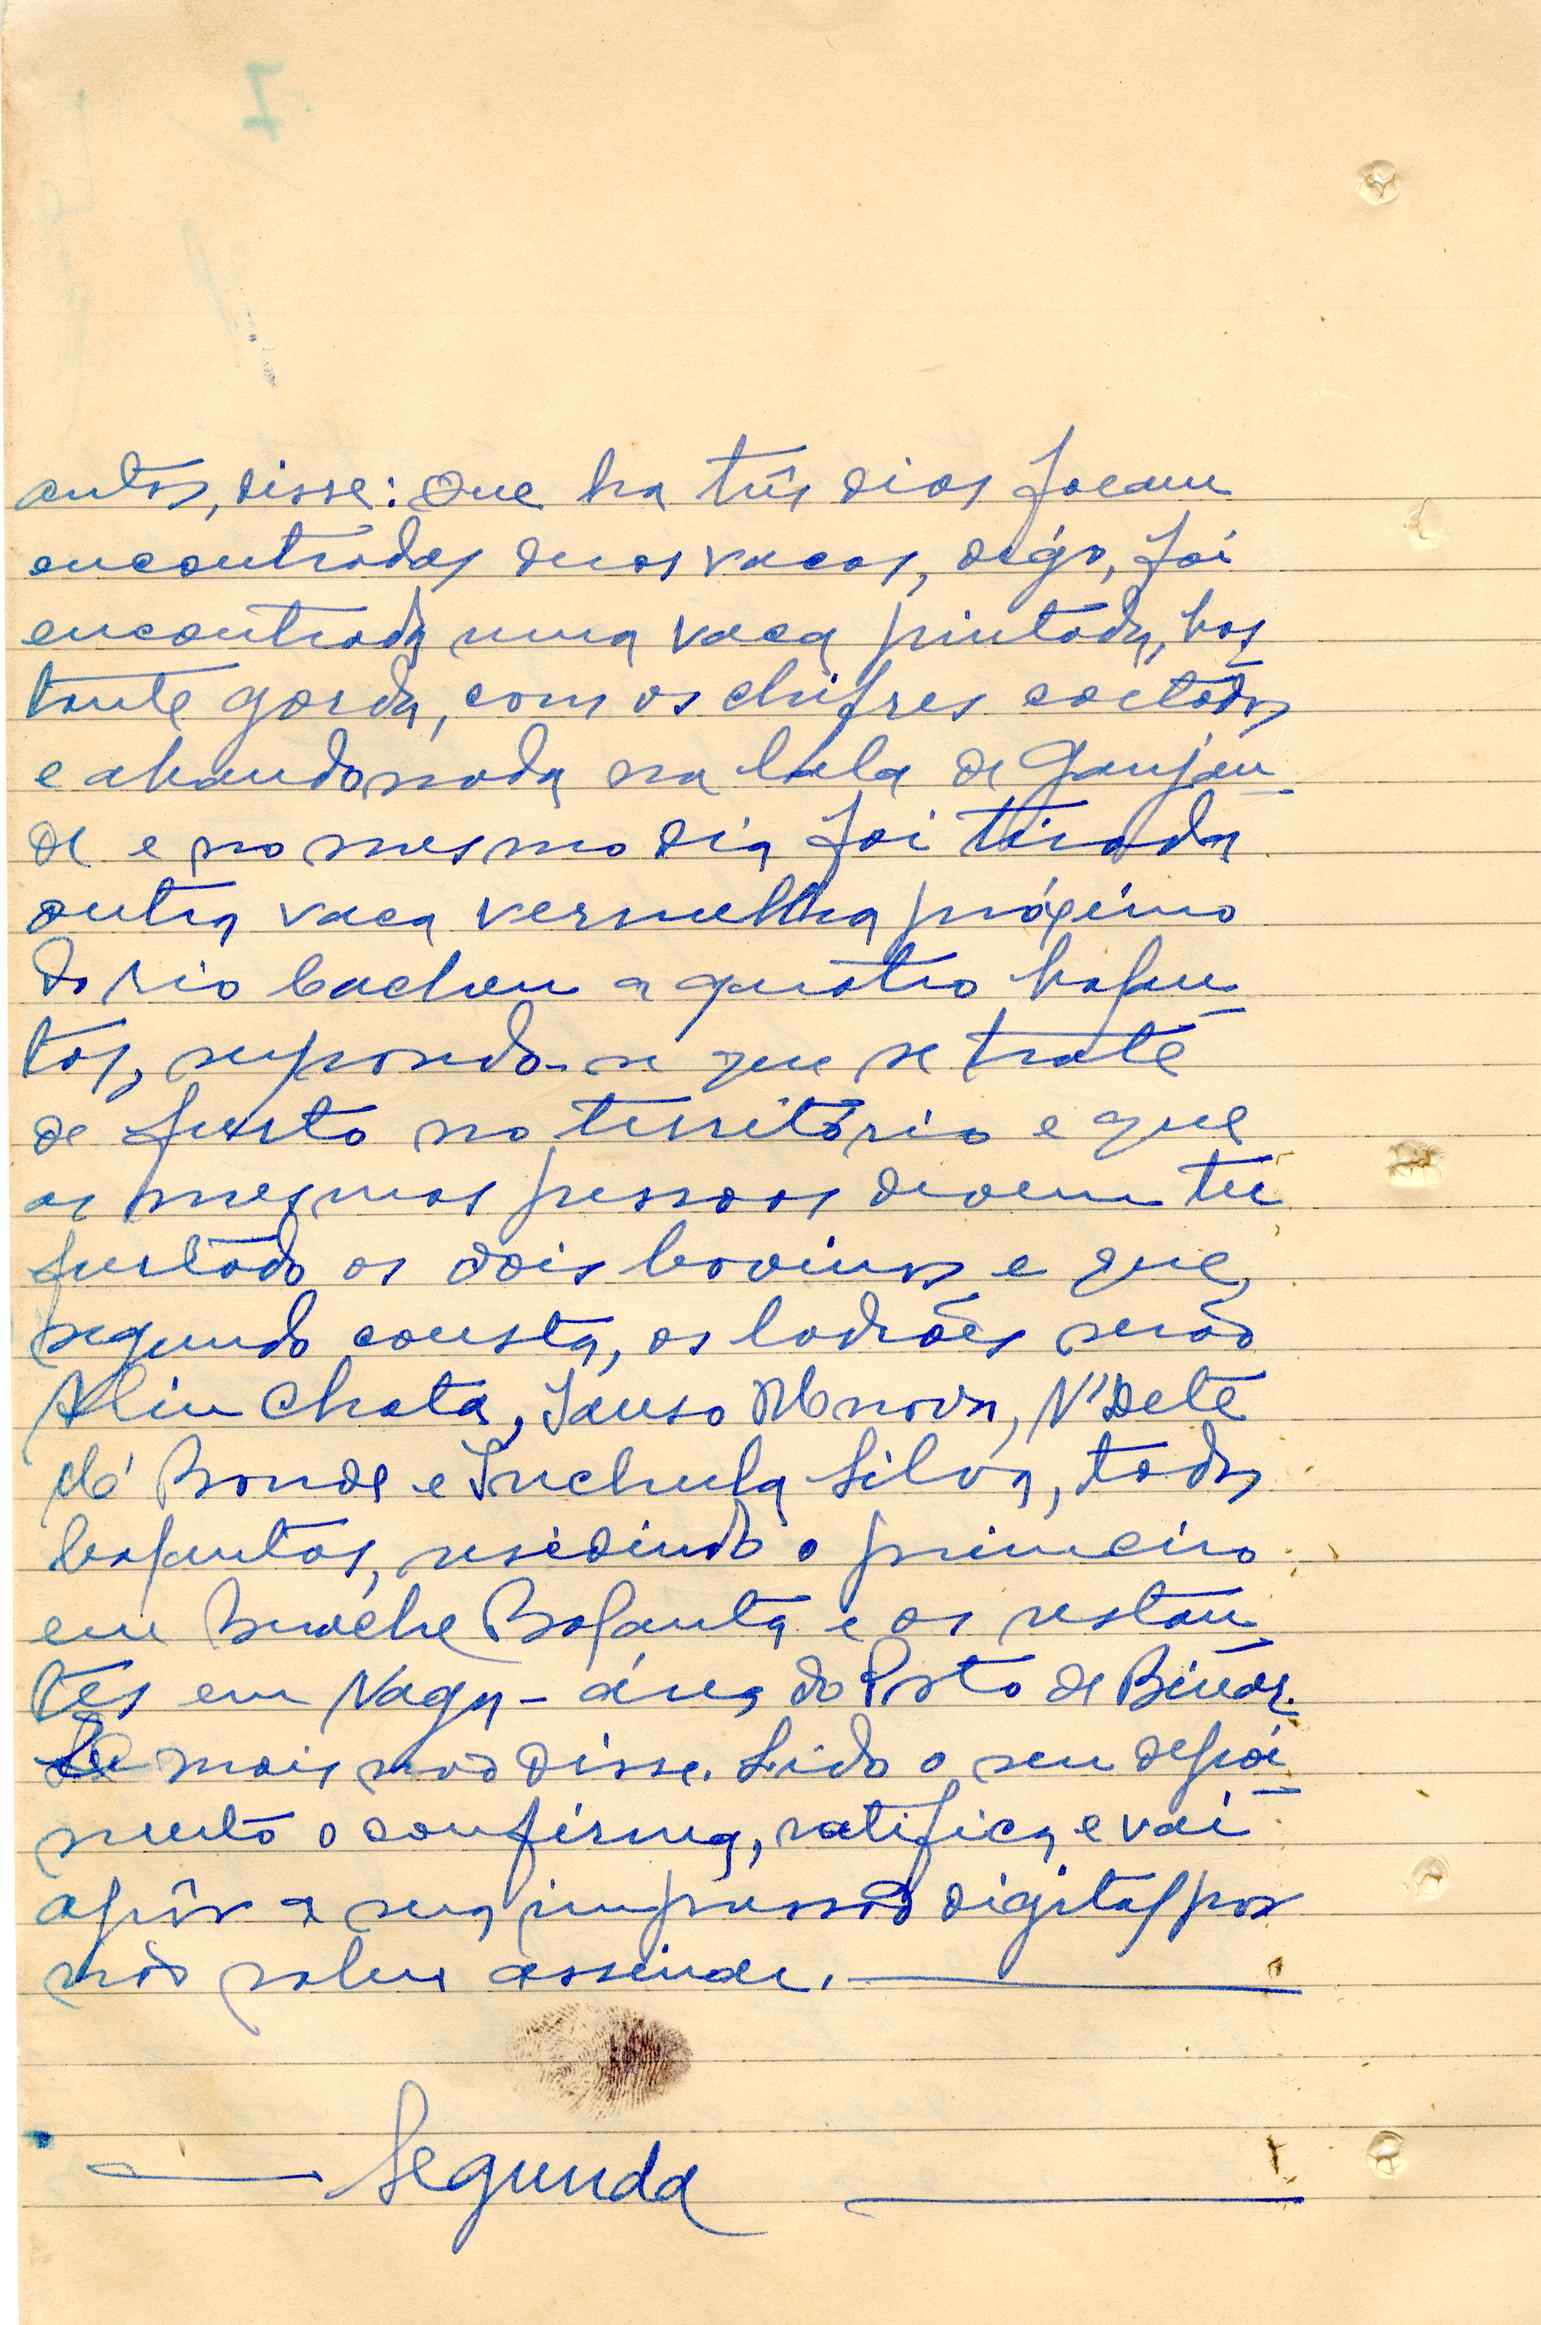 autos, disse: Que ha três dias foram
encontradas duas vacas, digo, foi
encontrada uma vaca pintada, bas
tante gorda, com os chifres cortados
e abandonada na bala de Ganjan
de e no mesmo dia foi tirada
outra vaca vermelha próximo
do rio Cacheu a quatro balan
tas, supondo-se que se trate
de furto no território e que
as mesmas pessoas devem ter
furtado os dois bovinos e que,
segundo consta, os ladrões serão
Aliu Chata, Sanso, N'Dete
Bonde e Inchula Silva, todos
balantas, residindo o primeiro
em Balanta e os restan
tes em Naga - área do Posto de Binar.
E mais não disse. Lido o seu depoi
mento o confirma, ratifica e vai
apôr a sua impressão digital por
não saber assinar.
Segunda